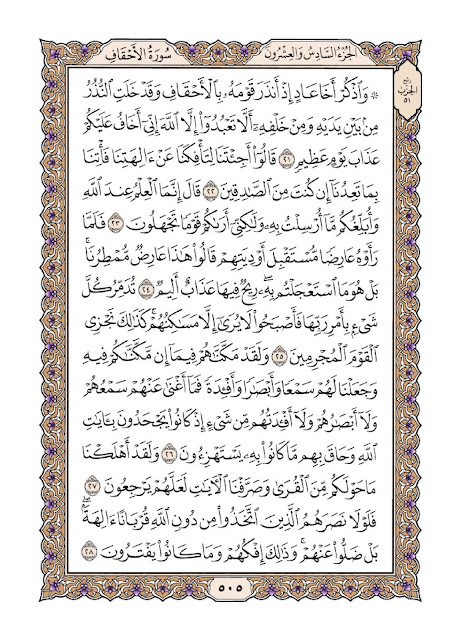 الجزء السادس والعشرون
سورة الأحقاف
ربع
الحزب
٥١
۞ وَٱذْكُرْ أَخَا عَادٍ إِذْ أَنذَرَ قَوْمَهُۥ بِٱلْأَحْقَافِ وَقَدْ خَلَتِ ٱلنُّذُرُ
مِنۢ بَيْنِ يَدَيْهِ وَمِنْ خَلْفِهِۦٓ أَلَّا تَعْبُدُوٓا۟ إِلَّا ٱللَّهَ إِنِّىٓ أَخَافُ عَلَيْكُمْ
عَذَابَ يَوْمٍ عَظِيمٍ ٢١ قَالُوٓا۟ أَجِئْتَنَا لِتَأْفِكَنَا عَنْ ءَالِهَتِنَا فَأْتِنَا
بِمَا تَعِدُنَآ إِن كُنتَ مِنَ ٱلصَّٰدِقِينَ ٢٢ قَالَ إِنَّمَا ٱلْعِلْمُ عِندَ ٱللَّهِ
وَأُبَلِّغُكُم مَّآ أُرْسِلْتُ بِهِۦ وَلَٰكِنِّىٓ أَرَىٰكُمْ قَوْمًا تَجْهَلُونَ ٢٣ فَلَمَّا
رَأَوْهُ عَارِضًا مُّسْتَقْبِلَ أَوْدِيَتِهِمْ قَالُوا۟ هَٰذَا عَارِضٌ مُّمْطِرُنَا ۚ
بَلْ هُوَ مَا ٱسْتَعْجَلْتُم بِهِۦ ۖ رِيحٌ فِيهَا عَذَابٌ أَلِيمٌ ٢٤ تُدَمِّرُ كُلَّ
شَىْءٍۭ بِأَمْرِ رَبِّهَا فَأَصْبَحُوا۟ لَا يُرَىٰٓ إِلَّا مَسَٰكِنُهُمْ ۚ كَذَٰلِكَ نَجْزِى
ٱلْقَوْمَ ٱلْمُجْرِمِينَ ٢٥ وَلَقَدْ مَكَّنَّٰهُمْ فِيمَآ إِن مَّكَّنَّٰكُمْ فِيهِ
وَجَعَلْنَا لَهُمْ سَمْعًا وَأَبْصَٰرًا وَأَفْـِٔدَةً فَمَآ أَغْنَىٰ عَنْهُمْ سَمْعُهُمْ
وَلَآ أَبْصَٰرُهُمْ وَلَآ أَفْـِٔدَتُهُم مِّن شَىْءٍ إِذْ كَانُوا۟ يَجْحَدُونَ بِـَٔايَٰتِ
ٱللَّهِ وَحَاقَ بِهِم مَّا كَانُوا۟ بِهِۦ يَسْتَهْزِءُونَ ٢٦ وَلَقَدْ أَهْلَكْنَا
مَا حَوْلَكُم مِّنَ ٱلْقُرَىٰ وَصَرَّفْنَا ٱلْـَٔايَٰتِ لَعَلَّهُمْ يَرْجِعُونَ ٢٧
فَلَوْلَا نَصَرَهُمُ ٱلَّذِينَ ٱتَّخَذُوا۟ مِن دُونِ ٱللَّهِ قُرْبَانًا ءَالِهَةًۢ ۖ
بَلْ ضَلُّوا۟ عَنْهُمْ ۚ وَذَٰلِكَ إِفْكُهُمْ وَمَا كَانُوا۟ يَفْتَرُونَ ٢٨
٥٠٥